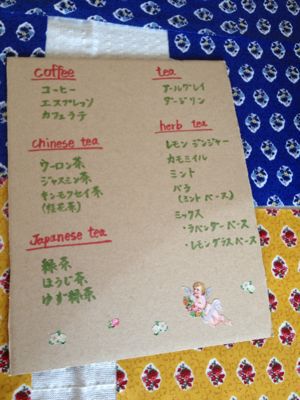 coffee
コーヒー
エスプレッソ
カフェラテ
chinese tea
ウーロン茶
ジャスミン茶
キンモクセイ茶
(桂花茶)
Japanese tea
緑茶
ほうじ茶
ゆず緑茶
tea
アールグレイ
ダージリン
herb tea
レモンジンジャー
カモミイル
ミント
バラ
(ミントベース)
ミックス
・ラベンダーベース
・レモングラスベース